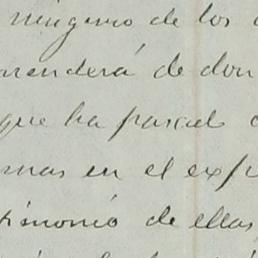 ninguno de los
renderá de don
que ha pasad
mas en el exp
timonio de ellas